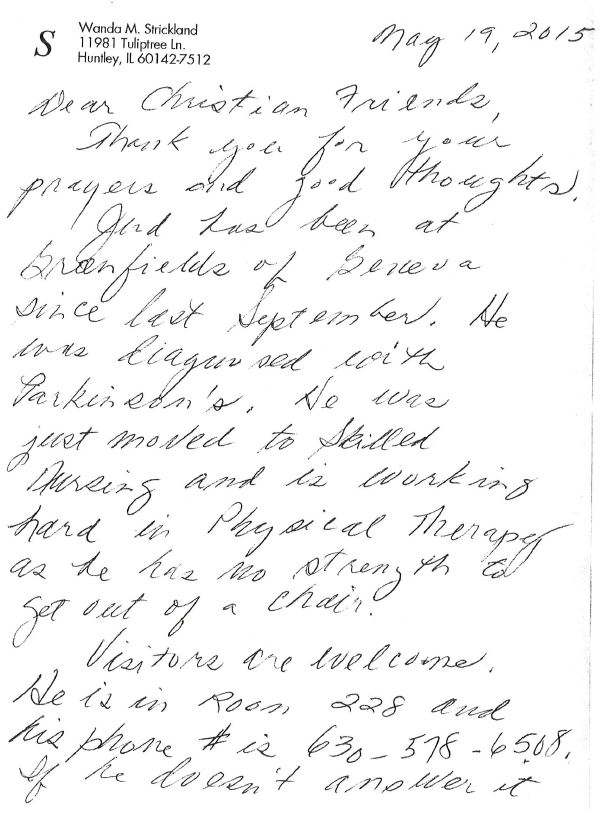 S
Wanda M. Strickland
11981 Tuliptree Ln.
Huntley, IL 60142-7512
May 19, 2015
Dear Christian Friends,
Thank you for your
prayers and good thoughts.
Jud has been at
Greenfields of Geneva
since last September. He
was diagnosed with
Parkinson's. He was
just moved to Skilled
Nursing and is working
hard in Physical Therapy
as he has no strength to
get out of a chair.
Visitors are welcome.
He is in Room 228 and
his phone # is 630-578-6508.
If he doesn't answer it